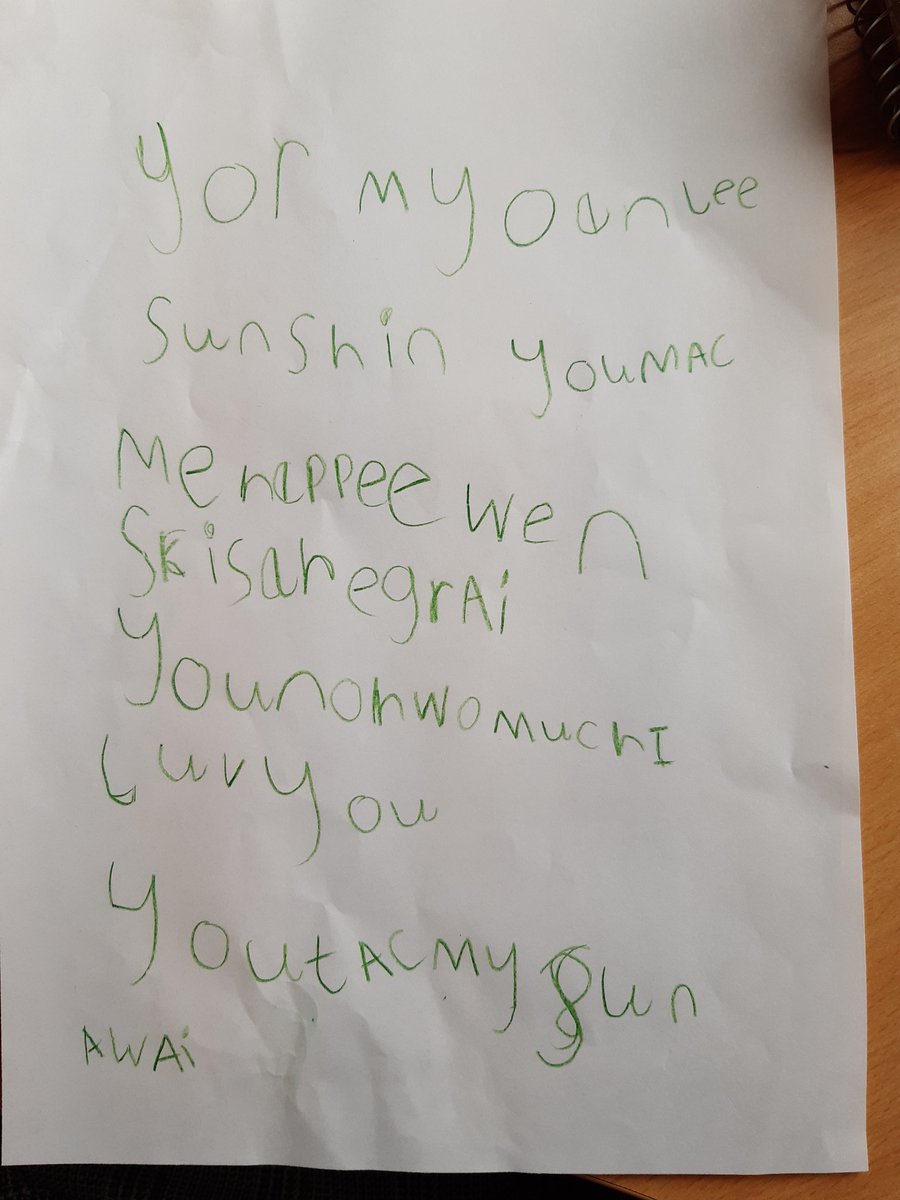 yor my oanlee
sunshin youmac
me happee wen
skisar egrai
younohwomuchI
luvyou
youtacmy sun
awai